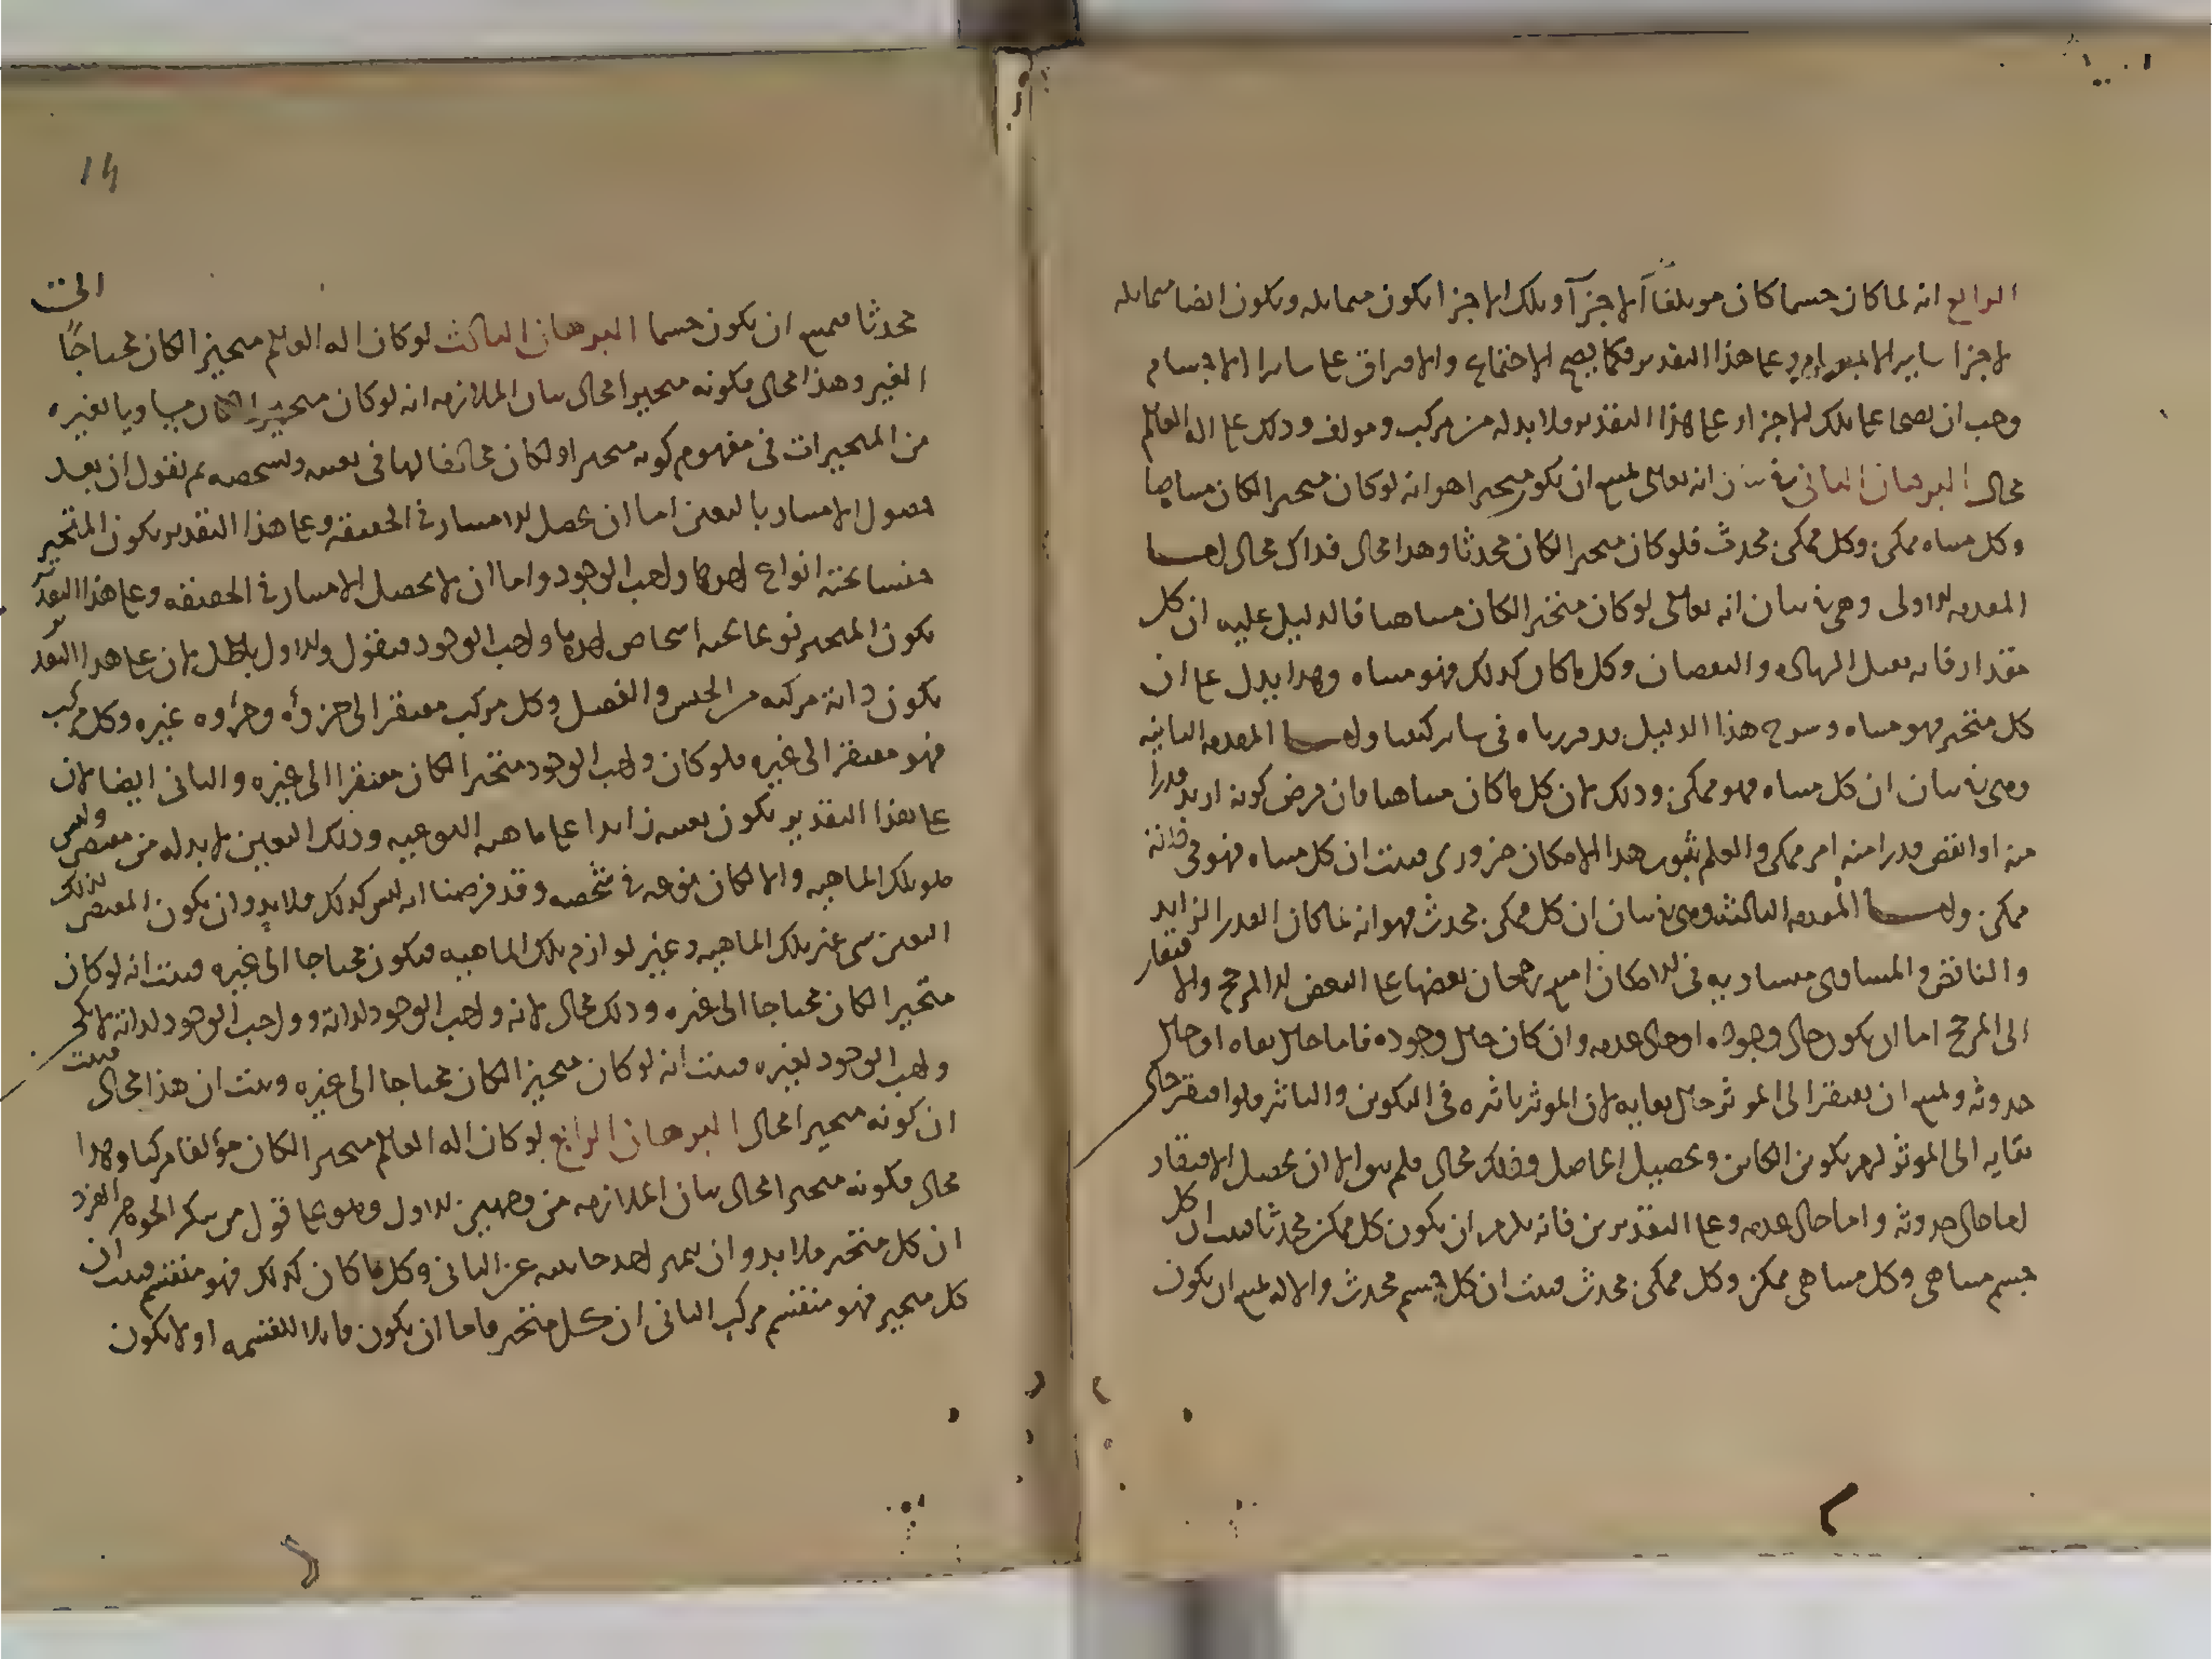 الرابع انه لما كان جسما كان مؤتلفا الاجزآ وتلك الاجزا تكون متماثله وتكون ايضا متماثله
لاجزا ساير الاجسام على هذا التقدير فكما يصح الاجتماع والافتراق على سائر الاجسام
وجب ان يصحا على تلك الاجزا وعلى هذا التقدير فلا بد له من مركب ومولف وذلك على اله العالم
محال البرهان الثاني في بيان انه تعالى يمتنع ان يكون متحيزا هو انه لو كان متحيزا لكان متناهيا
وكل متناه ممكن وكل ممكن محدث فلو كان متحيزا لكان محدثا وهذا محال فذاك محال اما
المقدمه الاولى وهي في بيان انه تعالى لو كان متحيزا لكان متناهيا فالدليل عليه ان كل
مقدار فانه يقبل الزياده والنقصان وكل ما كان كذلك فهو متناه وهذا يدل على ان
كل متحيز فهو متناه وشرح هذا الدليل قد قررناه في سائر كتبنا واما المقدمه الثانيه
وهي في بيان ان كل متناه فهو ممكن وذلك لان كل ما كان متناهيا فان فرض كونه ازيد قدرا
منه او انقص قدرا منه امر ممكن والعلم بثبوت هذا الامكان ضروري فثبت ان كل متناه فهو في ذاته
ممكن واما المقدمه الثالثه وهي في بيان ان كل ممكن محدث فهو انه لما كان القدر الزايد
والناقص والمساوي متساويه في الامكان امتنع رجحان بعضها على البعض الا لمرجح والافتقار
الى المرجح اما ان يكون حال وجوده او حال عدمه وان كان حال وجوده فاما حال بقاه او حال
حدوثه ويمتنع ان يفتقر الى الموثر حال بقايه لان الموثر تاثره في التكوين والتاثر فلو افتقر حال
بقايه الى الموثر لزم تكوين الكاين وتحصيل الحاصل وذلك محال فلم يبق الا ان يحصل الافتقار
اما حال حدوثه واما حال عدمه وعلى التقديرين فانه يلزم ان يكون كل ممكن محدثا فثبت ان كل
جسم متناهي وكل متناهي ممكن وكل ممكن محدث فثبت ان كل جسم محدث والاله يمتنع ان يكون
14
محدثا فيمتنع ان يكون جسما البرهان الثالث لو كان اله العالم متحيزا لكان محتاجًا الى
الغير وهذا محال فكونه متحيزا محال بيان الملازمه انه لو كان متحيزا لكان مساويا لغيره
من المتحيزات في مفهوم كونه متحيزا ولكان مخالفا لها في تعينه وتشخصه ثم نقول ان بعد
حصول الامتياز بالتعين اما ان يحصل الامتياز في الحقيقه وعلى هذا التقدير يكون المتحيز
جنسا تحته انواع احدها واجب الوجود واما ان لا يحصل الامتياز في الحقيقه وعلى هذا التقدير
يكون المتحيز نوعا تحته اشخاص احدها واجب الوجود فنقول والاول باطل لان على هذا التقدير
يكون ذاته مركبه من الجنس والفصل وكل مركب مفتقر الى جزؤه وجزؤه غيره وكل مركب
فهو مفتقر الى غيره فلو كان واجب الوجود متحيزا لكان مفتقرا الى غيره والثاني ايضا لان
على هذا التقدير يكون تعينه زايدا على ماهيته النوعيه وذلك التعين لا بد له من مقتضى وليس
هو تلك الماهيه والا لكان نوعه في شخصه وقد فرضنا انه ليس كذلك فلا بد وان يكون المقتضى لذلك
التعين شي غير تلك الماهيه وغير لوازم تلك الماهيه فيكون محتاجا الى غيره فثبت انه لو كان
متحيزا لكان محتاجا الى غيره وذلك محال لانه واجب الوجود لذاته وواجب الوجود لذاته لا يكن
واجب الوجود لغيره فثبت انه لو كان متحيزا لكان محتاجا الى غيره وثبت ان هذا محال فثبت
ان كونه متحيزا محال البرهان الرابع لو كان اله العالم متحيزا لكان مؤلفا مركبا وهذا
محال فكونه متحيزا محال بيان الملازمه من وجهين الاول وهو على قول من ينكر الجوهر الفرد
ان كل متحيز فلا بد وان يتميز احد جانبيه عن الثاني وكل ما كان كذلك فهو منقسم فثبت ان
كل متحيز فهو منقسم مركب الثاني ان كل متحيز فاما ان يكون قابلا للقسمه او لا يكون